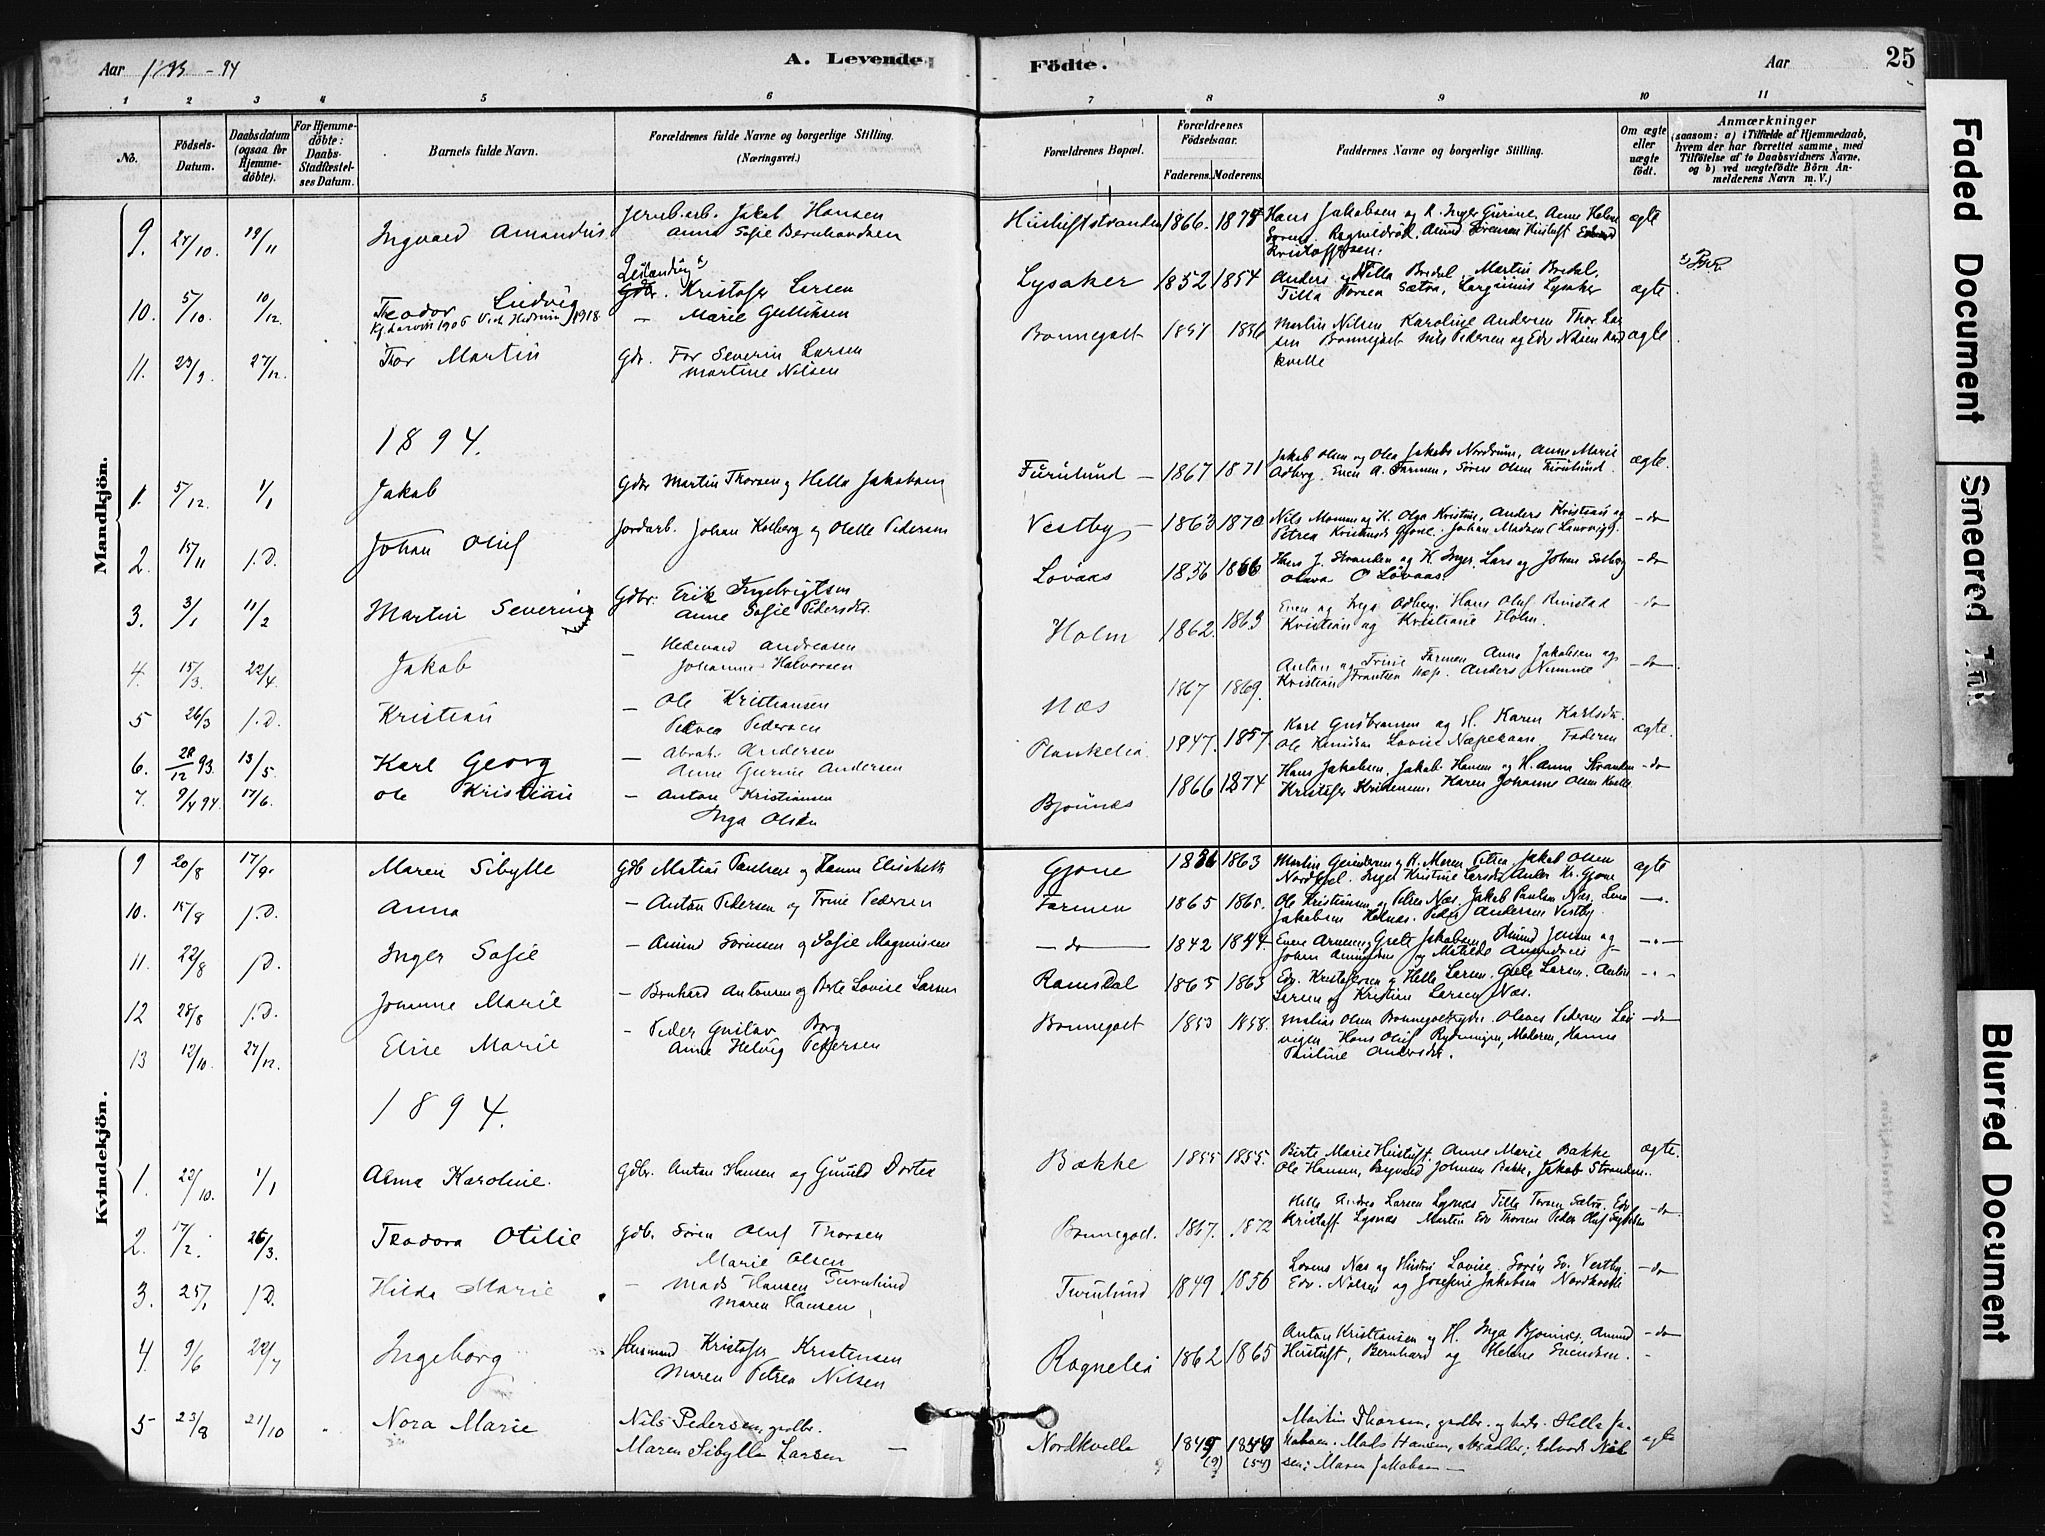 Aar 1893 - 94
A. Levende
Födte.
Aar
25
1 2 3 4 5 6 7 8 9 10 11
No.
Födsels-Datum.
Daabsdatum (ogsaa for Hjemme-döbte).
For Hjemme-döbte: Daabs-Stadfæstel-ses Datum.
Barnets fulde Navn.
Forældrenes fulde Navne og borgerlige Stilling. (Næringsvei.)
Forældrenes Bopæl.
Forældrenes Födselsaar.
Faderens. Moderens.
Faddernes Navne og borgerlige Stilling.
Om ægte eller uægte födt.
Anmærkninger
(saasom: a) i Tilfælde af Hjemmedaab, hvem der har forrettet samme, med Tilföielse af to Daabsvidners Navne, og b) ved uægtefödte Börn Anmelderens Navn m. V.)
Mandkjön.
9. 24/10. 19/11 Ingvald Amandus Jernb.arb. Jakob Hansen
Anna Sofie Bernhardsen
Hustuftstranden 1866. 1875 Hans Jakobsen og K. Inger Gurine, Anne Helene
ægte
Kristoffersen.
10. 5/10. 10/12. Teodor Ludvig
Gdbr. Kristofer Larsen
— Marie Gulliksen
Lysaker 1852 1854 Anders og Hella Bredal, Martin Bredal,
Tilla Torsen Sætra, Larsinius Lysaker ægte
11. 23/9. 27/12. Thor Martin Gdr. Tor Severin Larsen
Martine Nilsen
Bonnegolt 1856 Martin Nilsen Karoline Andersen Thor Lar
sen Bonnegolt Nils Pedersen og Edv Nilsen Nord
kvelle
ægte
1894.
1. 5/12. 1/1 Jakob Gdbr Martin Thorsen og Hella Jakobsen
Furulund — 1867 1871 Jakob Olsen og Olea Jakobs Nordrum, Anne Marie
Odberg. Even A. Farmen, Sören Olsen Furulund. ægte.
2. 15/11 f.D. Johan Oluf Jordarb. Johan Kolberg og Olette Pedersen
Vestby — 1863 1870 Nils Monsen og K. Olga Kristine, Anders Kristian og
Petrea Kristensd Gjone. Johan Madsen (Laurvig). — do
3. 3/1 11/2 Martin Severin Gdbr. Erik Ingebrigtsen
Anne Sofie Pedersdtr.
Lovaas 1856 1866 Hans J. Stranden og K. Inger, Lars og Johan Solberg
Olava O Lövaas — do
4. 15/3. 22/4. Jakob — Hedevard Andreasen
Johanne Halvorsen
Holm 1862. 1863 Even og Inga Odberg. Hans Oluf Rimstad
Kristian og Kristiane Holm. — do
5 26/3 f.D. Kristian — Ole Kristiansen
Petrea Pedersen
Næs 1867 1869. Anton og Trine Farmen, Anna Jakobsen og
Kristian Frantsen Næs. Anders Numme — do
6. 28/12 93. 13/5. Karl Georg — Abrah. Andersen
Anne Gurine Andersen
Plankelia 1847. 1857. Karl Gudbransen og H. Karen Karlsdr.
Ole Knudsen Lovise Næpekaas. Faderen ægte.
7. 9/4 94. 17/6. Ole Kristian — Anton Kristiansen
Inga Olsen
Bjönnes 1866 1874 Hans Jakobsen. Jakob Hansen og H. Anna Stranden
Kristofer Kristensen, Karen Johanne Olsen — do
Kvindekjön.
9 20/8 17/9. Maren Sibylle Gdb Matias Paulsen og Hanne Elisabeth
Gjone 1836 1863 Martin Gundersen og K. Maren Petrea, Jakob Olsen
Inger Kristine Larsdtr Anders Kr. Gjone ægte
10. 15/8 f.D. Anna — Anton Pedersen og Trine Pedersen
Farmen 1865 1865. Ole Kristiansen og Petrea Næs. Jakob Paulsen Næs. Lena
Jakobsen Holnæs. Peder Andersen Vestby.
11. 22/8 f.D. Inger Sofie — Amund Sörensen og Sofie Magnussen
— do — 1842 1844. Even Arnesen, Grete Jakobsen, Amund Jensen og
Johan Amundsen og Matilde Amundsen
12 28/8 f.D. Johanne Marie — Bernhard Antonsen og Berte Lovise Larsen
Ramsdal 1865 1863 Edv. Kristofersen og Helle Larsen. Grete Larsen. Anton
Larsen og Kristian Larsen Næs.
13 12/10. 27/12. Elise Marie — Peder Gustav Borg
Anne Helvig Pedersen
Bonnegolt 1853 1858. Matias Olsen Bonnegolt Olaves Pedersen Lar
vigen Hans Oluf Rydningen, Moderen, Hanna
Pauline Andersdtr. — do
1894.
1. 22/10. 1/1 Alma Karoline. Gdbr. Anton Hansen og Gunild Dortea
Bakke 1855 1855. Berte Marie Hustuft, Anne Marie Bakke
Ole Hansen, Johnsen Bakke, Jakob Stranden. ægte.
2. 17/2. 26/3. Teodora Otilie Gdb. Sören Oluf Thorsen
Marie Olsen
Bonnegolt. 1867. 1872 Helle Andrea Larsen Lysnæs Tilla Torsen Sætra. Edv.
Kristoff Lysnæs Martin Edv Thorsen Peder Oluf — do
3. 25/1 f.D. Hilda Marie — Mads Hansen Furulund
Maren Hansen
Furulund 1849 1856 Lovens Næs og Hustru Lovise. Sörin Sv. Vestby.
Edv. Nilsen og Josefine Jakobsen Nordkvelle — do
4. 9/6 22/7 Ingeborg Husmand Kristofer Kristensen
Maren Petrea Nilsen
Rognelia 1862 1865 Anton Kristiansen og H. Inga Bjönnes, Amund
Hustuft, Bernhard og Helene Svendsen. — do
5 23/8 21/10 Nora Marie Nils Pedersen, gadbr.
Maren Sibylla Larsen
Nordkvella 1849 (9) 1854 (54) Martin Thorsen, gadbr. og hst. Hella Ja-
kobsen. Mads Hansen, Edvard Niel
sen; Maren Jakobsen — ægte
Faded Document
Smeared Ink
Blurred Document